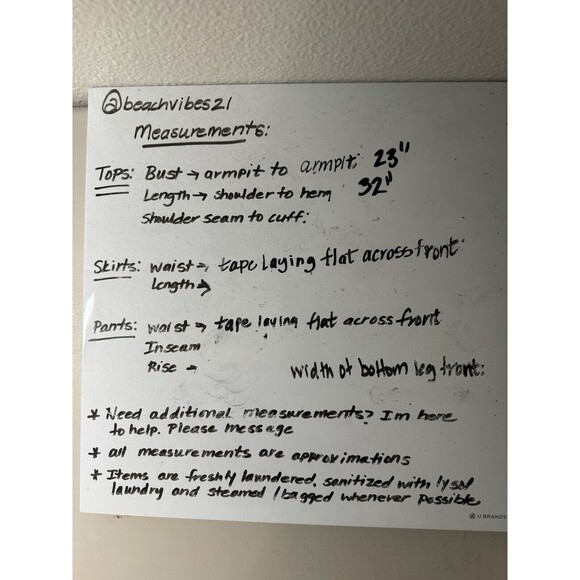 @beachvibes21
Measurements:
Tops: Bust → armpit to armpit: 23"
Length → shoulder to hem 32"
Shoulder seam to cuff:
Skirts: waist → tape laying flat across front:
Length →
Pants: waist → tape laying flat across front
Inseam
Rise → width of bottom leg front:
* Need additional measurements? Im here
to help. Please message
* all measurements are approximations
* Items are freshly laundered, sanitized with lysol
laundry and steamed / bagged whenever possible
U BRANDS